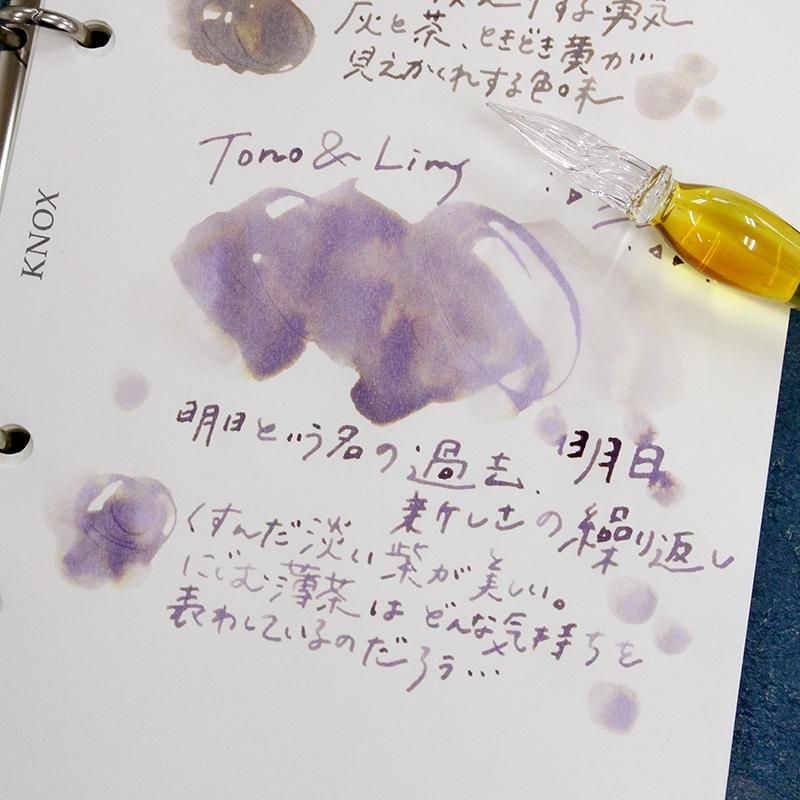 する
灰と茶、ときどき黄が
見えかくれする色味
Tono & Lims
KNOX
明日という名の過去、明日
新しさの繰り返し
くすんだ淡い紫が美しい。
にじむ薄茶はどんな気持ちを
表わしているのだろう…